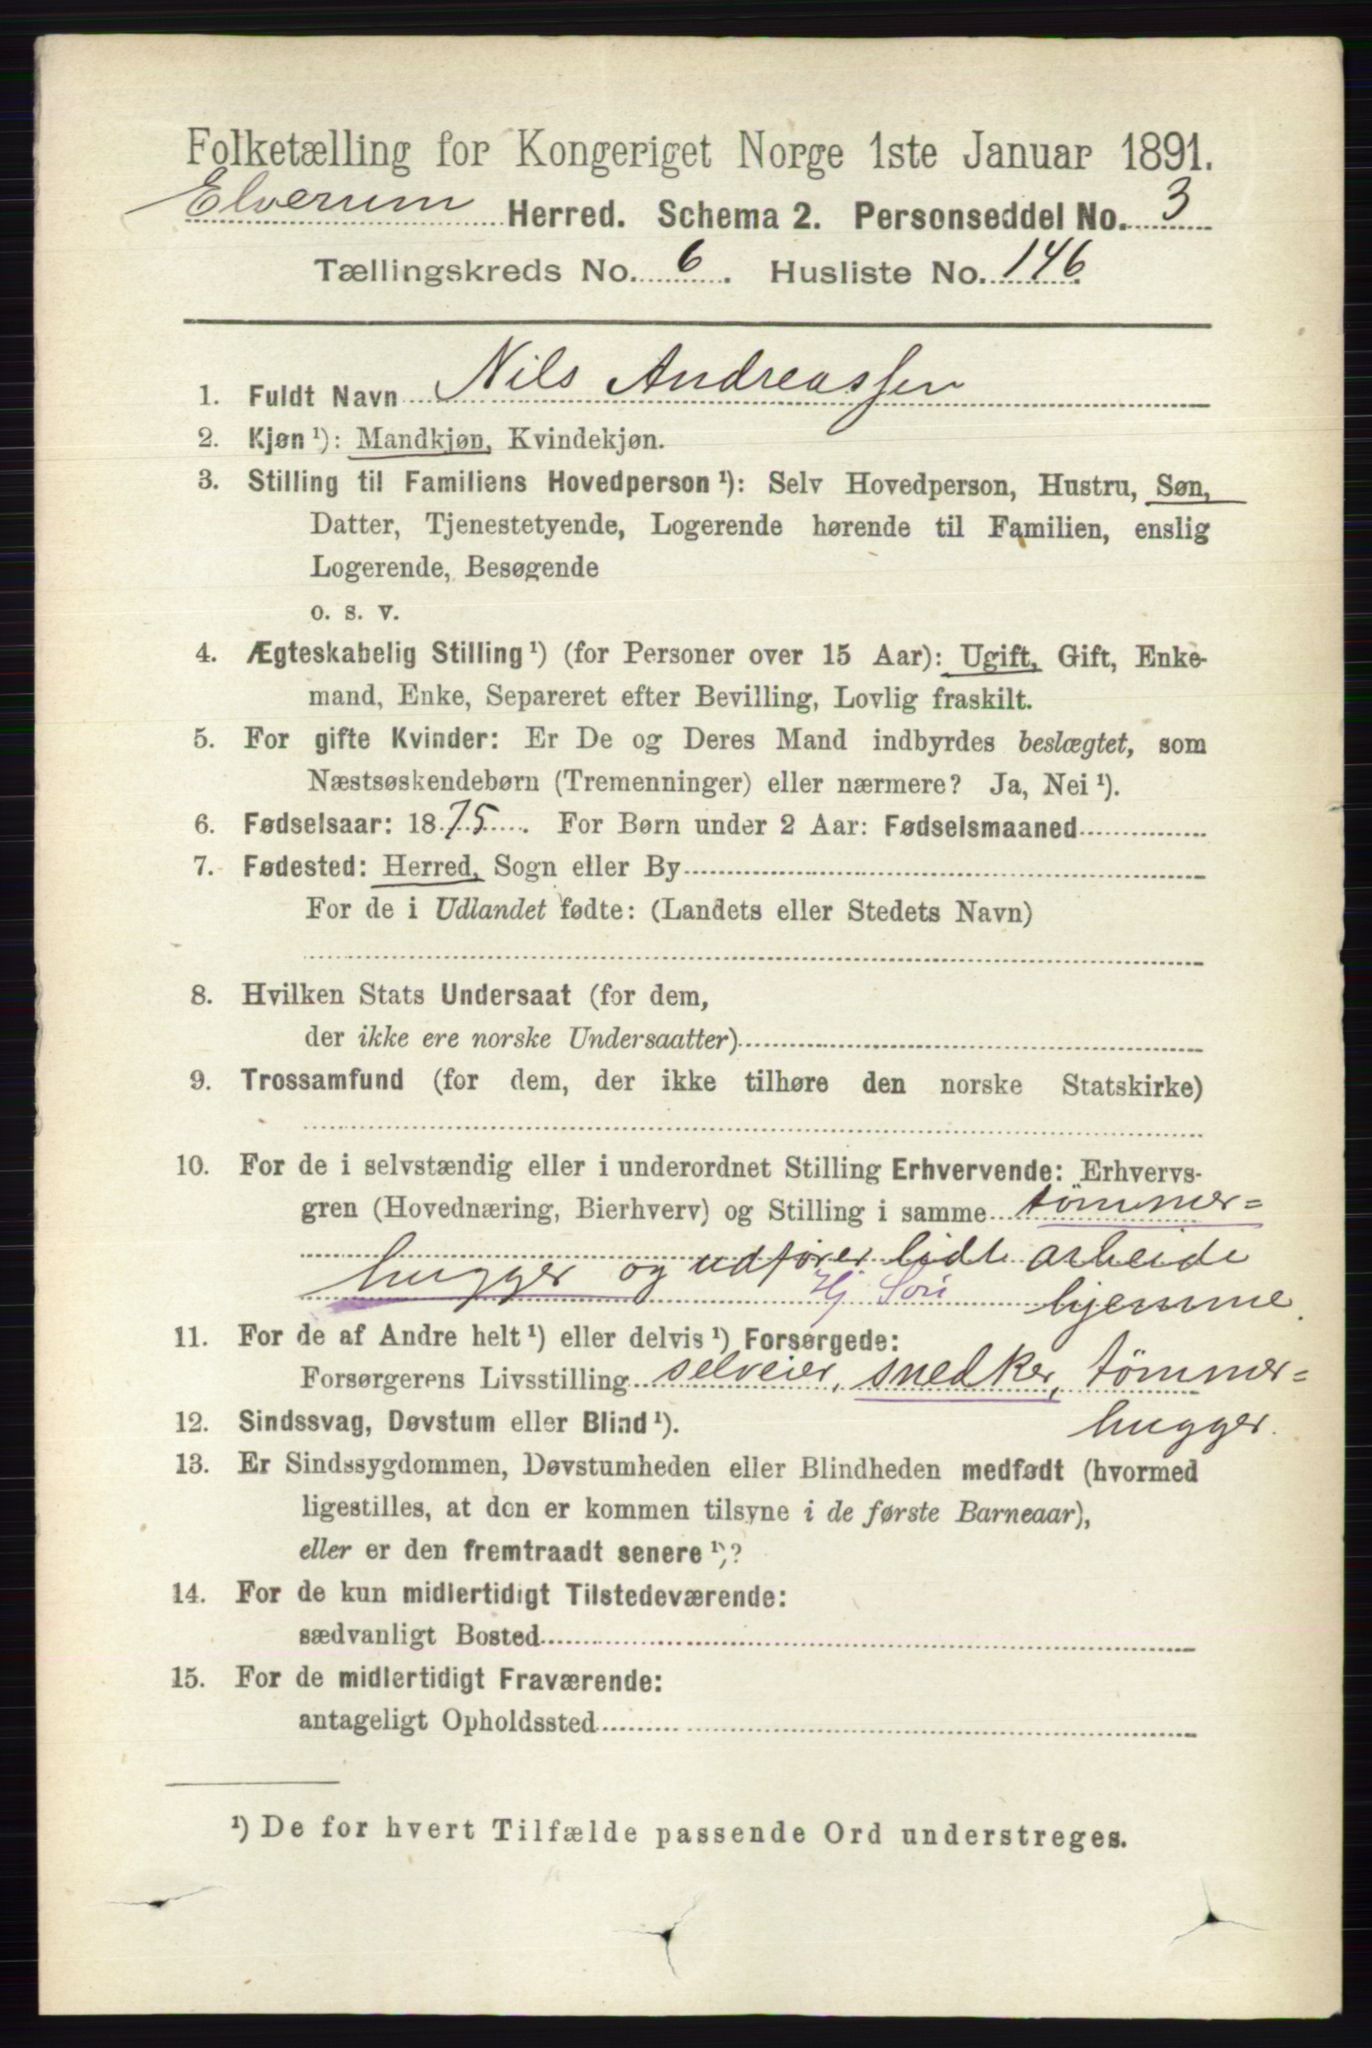 Folketælling for Kongeriget Norge 1ste Januar 1891.
Elverum Herred. Schema 2. Personseddel No. 3
Tællingskreds No. 6. Husliste No. 146
1. Fuldt Navn Nils Andreassen
2. Kjøn ¹): Mandkjøn, Kvindekjøn.
3. Stilling til Familiens Hovedperson ¹): Selv Hovedperson, Hustru, Søn,
Datter, Tjenestetyende, Logerende hørende til Familien, enslig
Logerende, Besøgende
o. s. v.
4. Ægteskabelig Stilling ¹) (for Personer over 15 Aar): Ugift, Gift, Enke-
mand, Enke, Separeret efter Bevilling, Lovlig fraskilt.
5. For gifte Kvinder: Er De og Deres Mand indbyrdes beslægtet, som
Næstsøskendebørn (Tremenninger) eller nærmere? Ja, Nei ¹).
6. Fødselsaar: 1875. For Børn under 2 Aar: Fødselsmaaned
7. Fødested: Herred, Sogn eller By
For de i Udlandet fødte: (Landets eller Stedets Navn)
8. Hvilken Stats Undersaat (for dem,
der ikke ere norske Undersaatter)
9. Trossamfund (for dem, der ikke tilhøre den norske Statskirke)
10. For de i selvstændig eller i underordnet Stilling Erhvervende: Erhvervs-
gren (Hovednæring, Bierhverv) og Stilling i samme tömmer=
hugger og udfører lidt arbeide
Hj Søn hjemme.
11. For de af Andre helt ¹) eller delvis ¹) Forsørgede:
Forsørgerens Livsstilling selveier, snedker, tömmer=
hugger.
12. Sindssvag, Døvstum eller Blind ¹).
13. Er Sindssygdommen, Døvstumheden eller Blindheden medfødt (hvormed
ligestilles, at den er kommen tilsyne i de første Barneaar),
eller er den fremtraadt senere ¹)?
14. For de kun midlertidigt Tilstedeværende:
sædvanligt Bosted
15. For de midlertidigt Fraværende:
antageligt Opholdssted
¹) De for hvert Tilfælde passende Ord understreges.